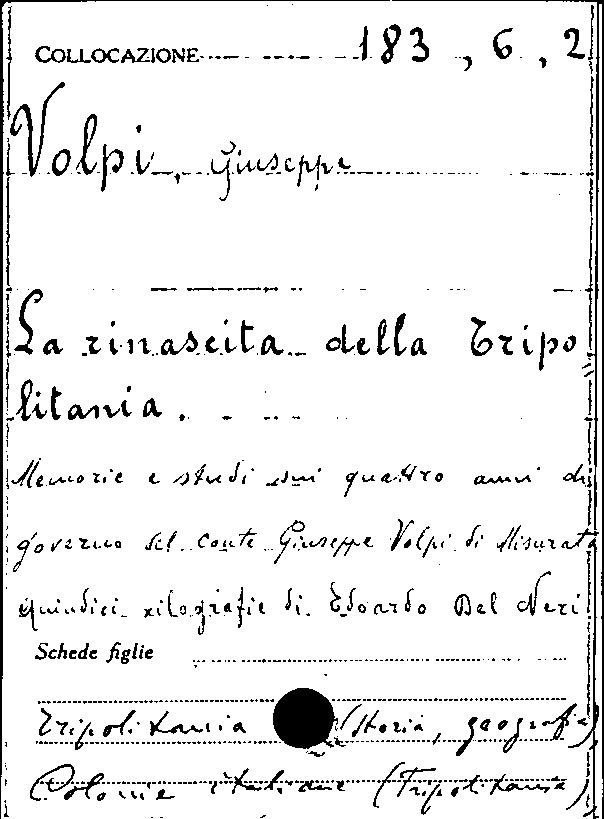 COLLOCAZIONE 183, 6, 2
Volpi, Giuseppe
La rinascita della Tripo
litania.
Memorie e studi sui quattro anni di
governo del conte Giuseppe Volpi di Misurata
quindici xilografie di Edoardo Del Neri
Schede figlie
Tripolitania (Storia, geografia)
Colonie italiane (Tripolitania)